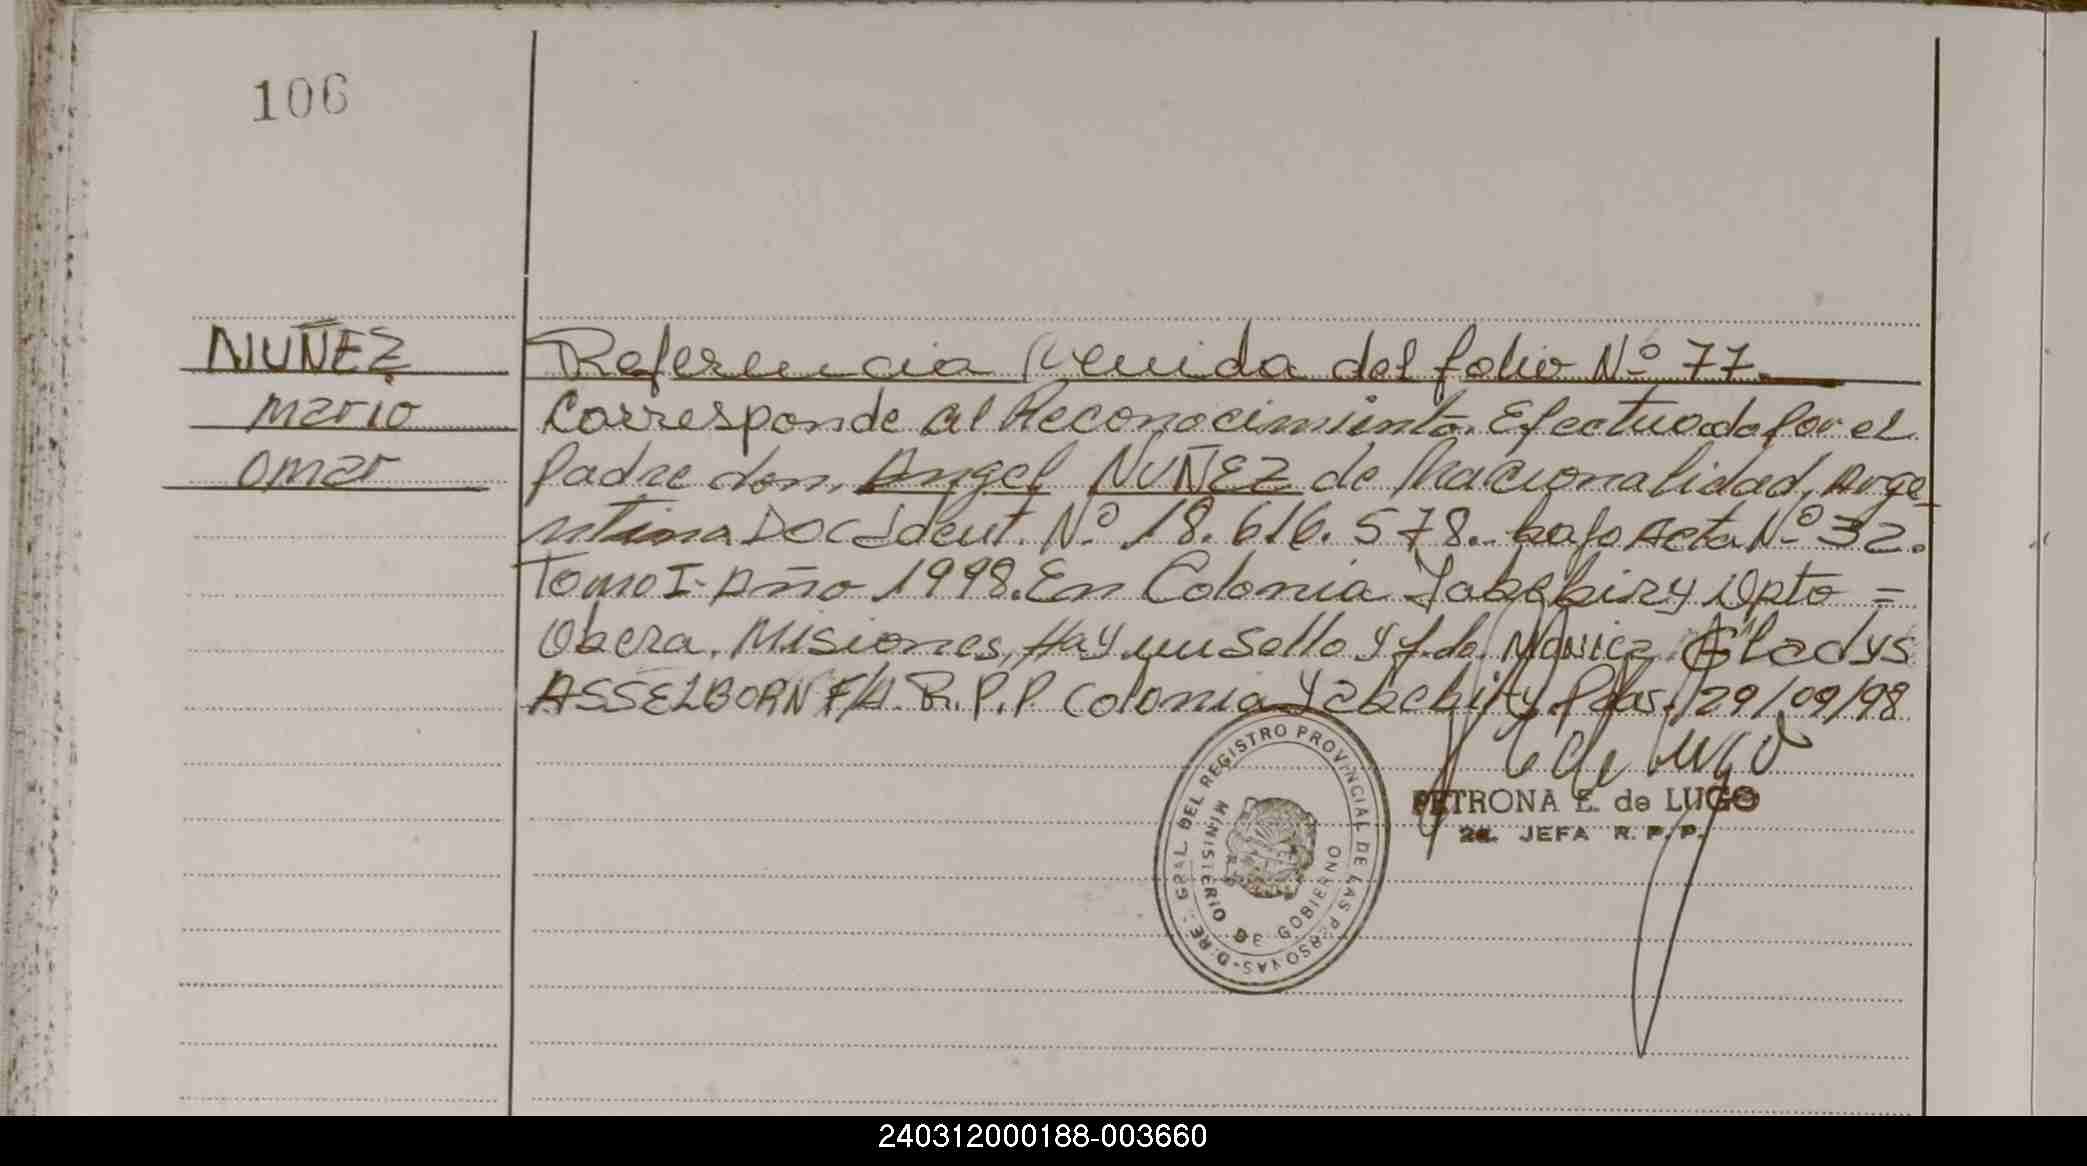 106
NUÑEZ
Mario
Omar
Referencia Venida del folio Nº 77.
Corresponde al Reconocimiento. Efectuado por el
Padre don, Angel NUÑEZ de Nacionalidad, Arge-
ntina DOC Ident. Nº 18.616.578. bajo Acta Nº 32.
Tomo I- Año 1998. En Colonia Yabebiry Dpto =
Obera. Misiones, Hay un Sello y f.do. Monica Gladys
ASSELBORN F/A. R.P.P. Colonia Yabebiry. Pdas. 29/09/98
E de Lugo
PETRONA E. de LUGO
2a. JEFA R. P. P.
DIRE. GRAL. DEL REGISTRO PROVINCIAL DE LAS PERSONAS-
MINISTERIO DE GOBIERNO
240312000188-003660